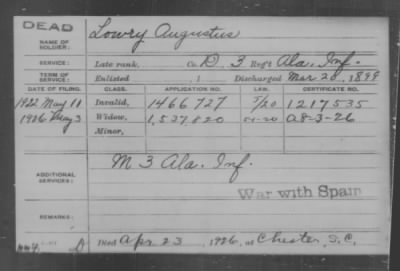 DEAD
NAME OF SOLDIER: Lowry Augustus
SERVICE: Late rank, Co. D, 3 Reg't Ala. Inf.
TERM OF SERVICE: Enlisted , 1 Discharged Mar 20, 1899
DATE OF FILING. CLASS. APPLICATION NO. LAW. CERTIFICATE NO.
1922 May 11 Invalid, 1466727 1217535
1926 May 3 Widow, 1,537,820 A8-3-26
Minor,
ADDITIONAL SERVICES: M 3 Ala. Inf.
War with Spain
REMARKS:
Died Apr 23, 1926, at Chester, S.C.